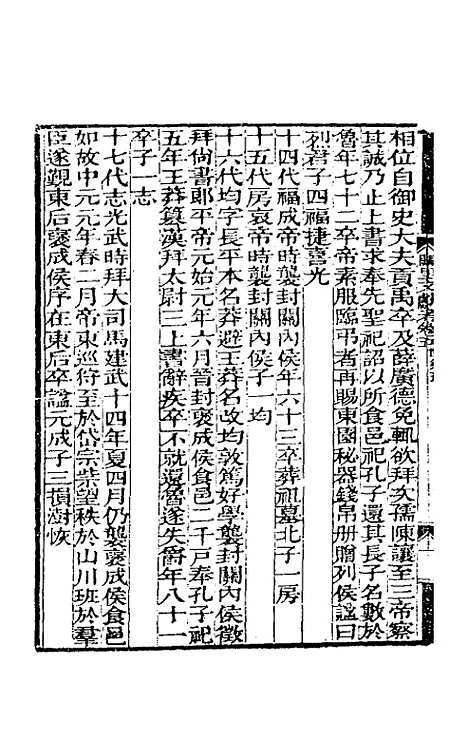 相位自御史大夫貢禹卒及薛廣德免輒欲拜次孺陳讓至三帝察
其誠乃止上書求奉先聖祀詔以所食邑祀孔子還其長子名數於
魯年七十二卒帝素服臨弔者再賜東園秘器錢帛册贈列侯諡曰
烈君子四福捷喜光
十四代福成帝時襲封關內侯年六十三卒葬祖墓北子一房
十五代房哀帝時襲封關內侯子一均
十六代均字長平本名莽避王莽名改均敦篤好學襲封關內侯徵
拜尚書郎平帝元始元年六月晉封褒成侯食邑二千戸奉孔子祀
五年王莽簒漢拜太尉三上書辭疾卒不就還魯遂失爵年八十一
卒子一志
十七代志光武時拜大司馬建武十四年夏四月仍襲褒成侯食邑
如故中元元年春二月帝東巡狩至於岱宗柴望秩於山川班於羣
臣遂覲東后褒成侯序在東后卒諡元成子三損澍恢